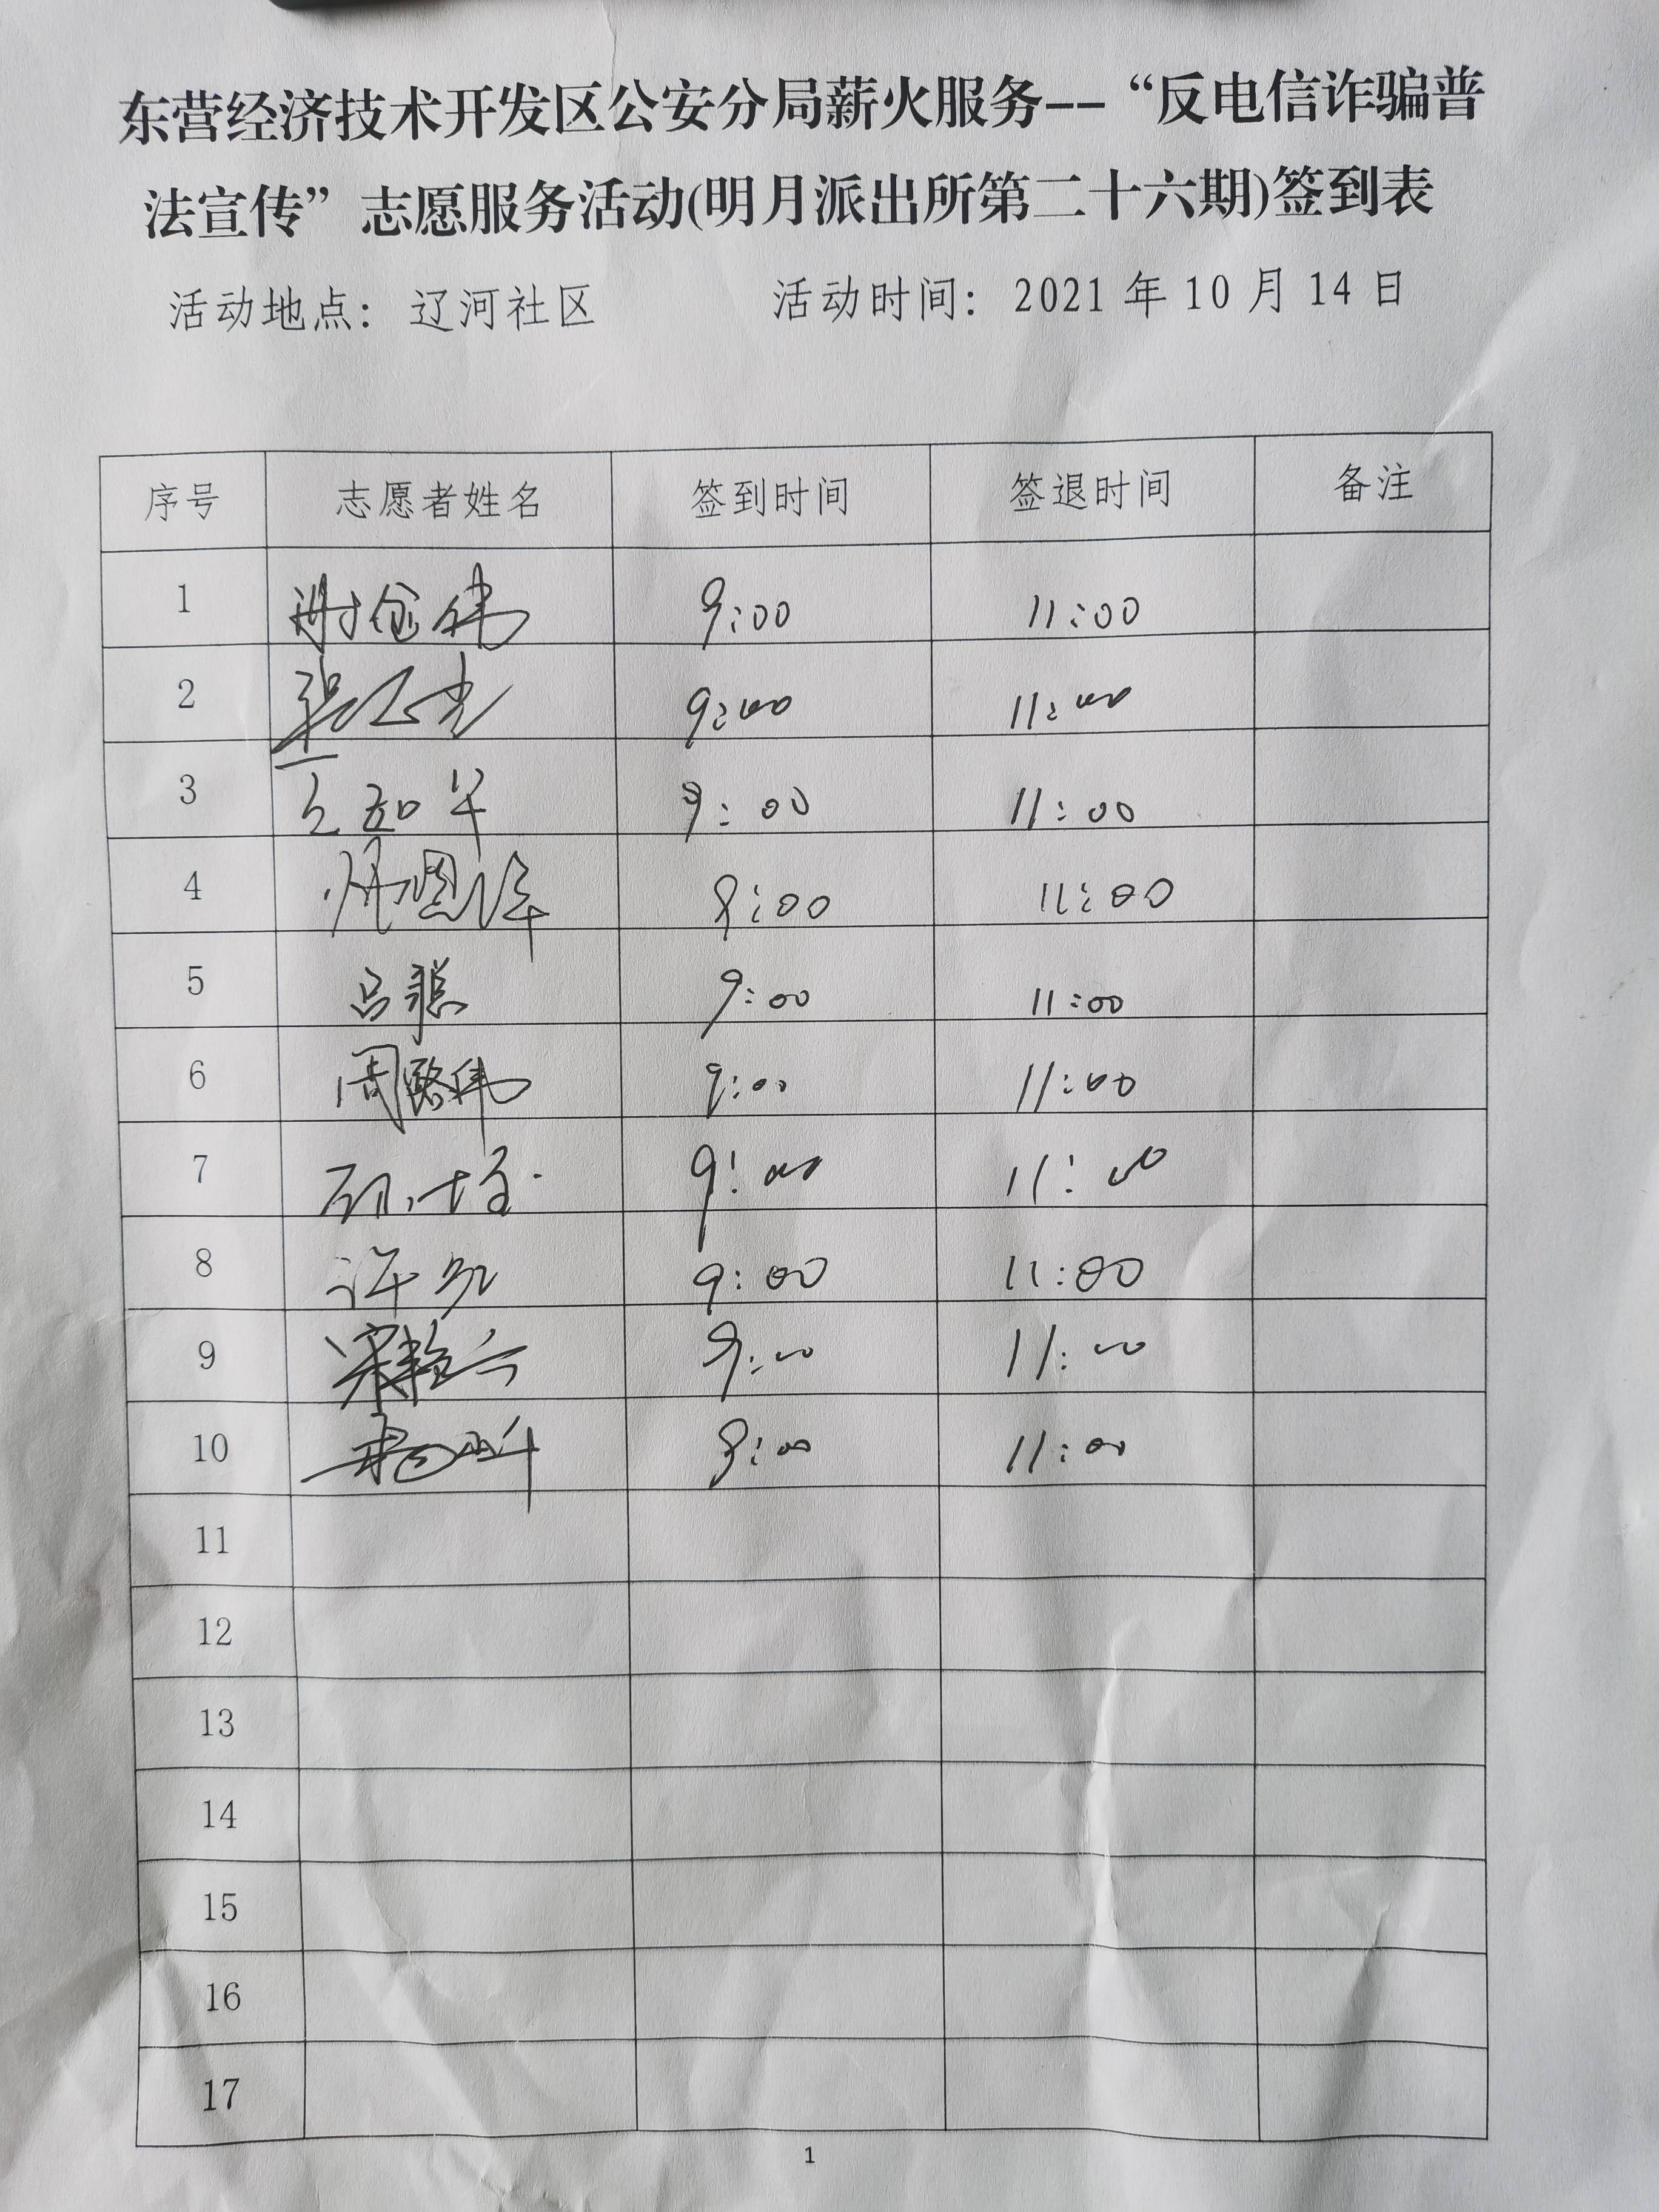 东营经济技术开发区公安分局薪火服务--“反电信诈骗普
法宣传”志愿服务活动(明月派出所第二十六期)签到表
活动地点：辽河社区 活动时间：2021年10月14日
序号 志愿者姓名 签到时间 签退时间 备注
1 9:00 11:00
2 9:00 11:00
3 9:00 11:00
4 9:00 11:00
5 吕聪 9:00 11:00
6 周 伟 9:00 11:00
7 9:00 11:00
8 许 9:00 11:00
9 9:00 11:00
10 9:00 11:00
11
12
13
14
15
16
17
1